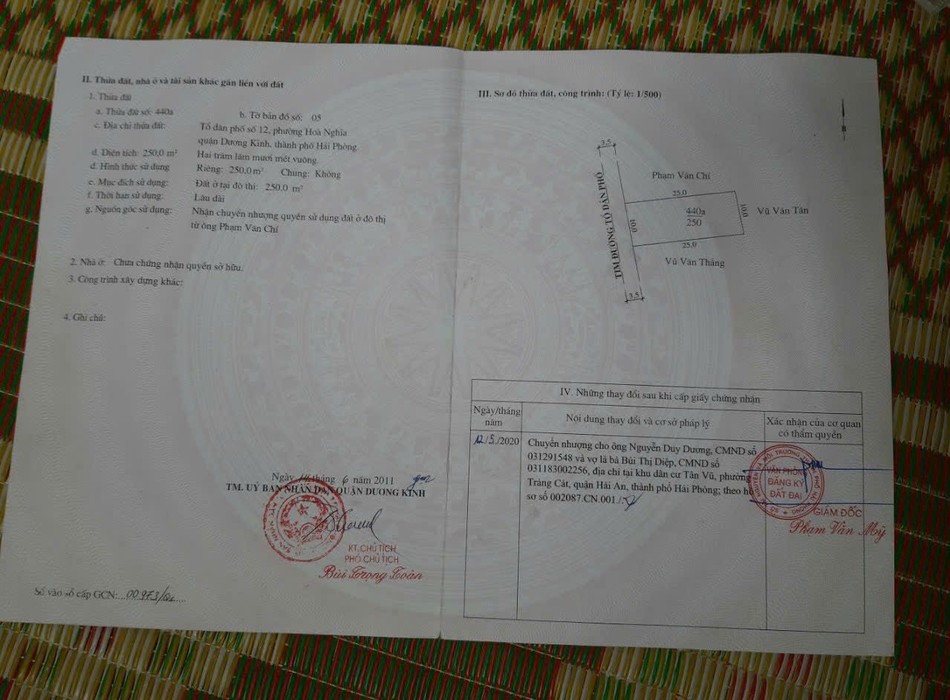 II. Thửa đất, nhà ở và tài sản khác gắn liền với đất
1. Thửa đất
a. Thửa đất số: 440a
b. Tờ bản đồ số: 05
c. Địa chỉ thửa đất: Tổ dân phố số 12, phường Hoà Nghĩa
quận Dương Kinh, thành phố Hải Phòng.
d. Diện tích: 250,0 m² Hai trăm lăm mươi mét vuông.
đ. Hình thức sử dụng Riêng: 250,0 m² Chung: Không
e. Mục đích sử dụng: Đất ở tại đô thị: 250,0 m²
f. Thời hạn sử dụng: Lâu dài
g. Nguồn gốc sử dụng: Nhận chuyển nhượng quyền sử dụng đất ở đô thị
từ ông Phạm Văn Chí
2. Nhà ở: Chưa chứng nhận quyền sở hữu.
3. Công trình xây dựng khác:
4. Ghi chú:
Ngày tháng 6 năm 2011
TM. UỶ BAN NHÂN DÂN QUẬN DƯƠNG KINH
KT.CHỦ TỊCH
PHÓ CHỦ TỊCH
Bùi Trọng Toàn
Số vào sổ cấp GCN:
III. Sơ đồ thửa đất, công trình: (Tỷ lệ: 1/500)
3.5
Phạm Văn Chí
25.0
TIM ĐƯỜNG TỔ DÂN PHỐ
10.0
440a
250
10.0
Vũ Văn Tân
25.0
Vũ Văn Thắng
3.5
IV. Những thay đổi sau khi cấp giấy chứng nhận
Ngày/tháng
năm
Nội dung thay đổi và cơ sở pháp lý
Xác nhận của cơ quan
có thẩm quyền
12/5/2020
Chuyển nhượng cho ông Nguyễn Duy Dương, CMND số
031291548 và vợ là bà Bùi Thị Diệp, CMND số
031183002256, địa chỉ tại khu dân cư Tân Vũ, phường
Tràng Cát, quận Hải An, thành phố Hải Phòng; theo hồ
sơ số 002087.CN.001
VĂN PHÒNG
ĐĂNG KÝ
ĐẤT ĐAI
GIÁM ĐỐC
Phạm Văn Mỹ